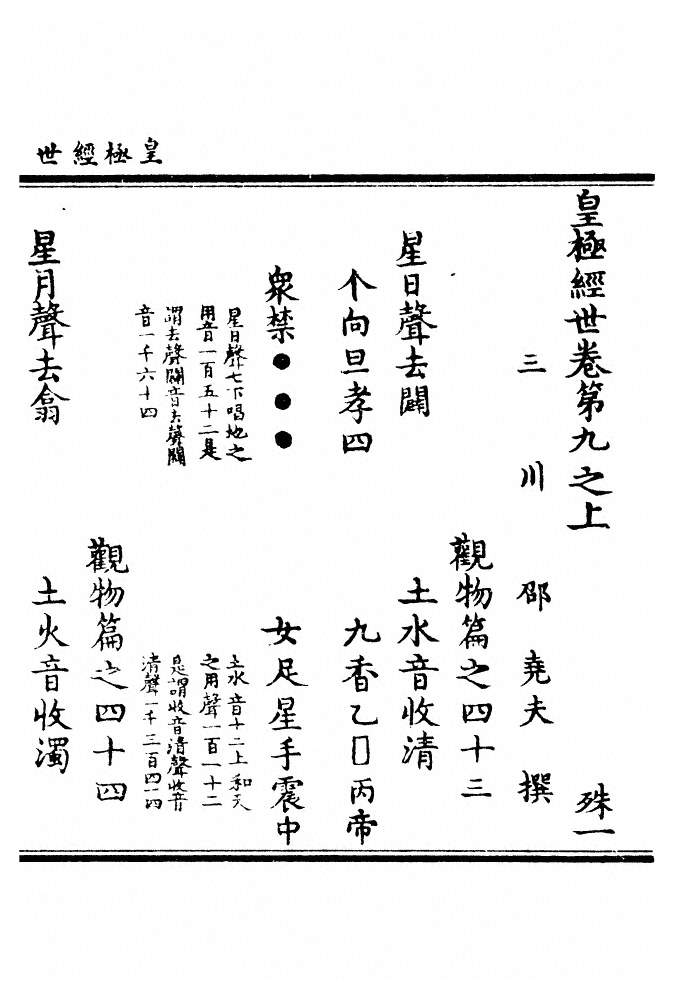 皇極經世
皇極經世卷第九之上 殊一
三川 邵堯夫 撰
觀物篇之四十三
星日聲去闢 土水音收清
个向旦孝四 九香乙□丙帝
眾禁●●● 女足星手震中
星日聲七下唱地之
用音一百五十二是
謂去聲闢音去聲闢
音一千六十四
土水音十二上和天
之用聲一百一十二
是謂收音清聲收音
清聲一千三百四十四
觀物篇之四十四
星月聲去翕 土火音收濁